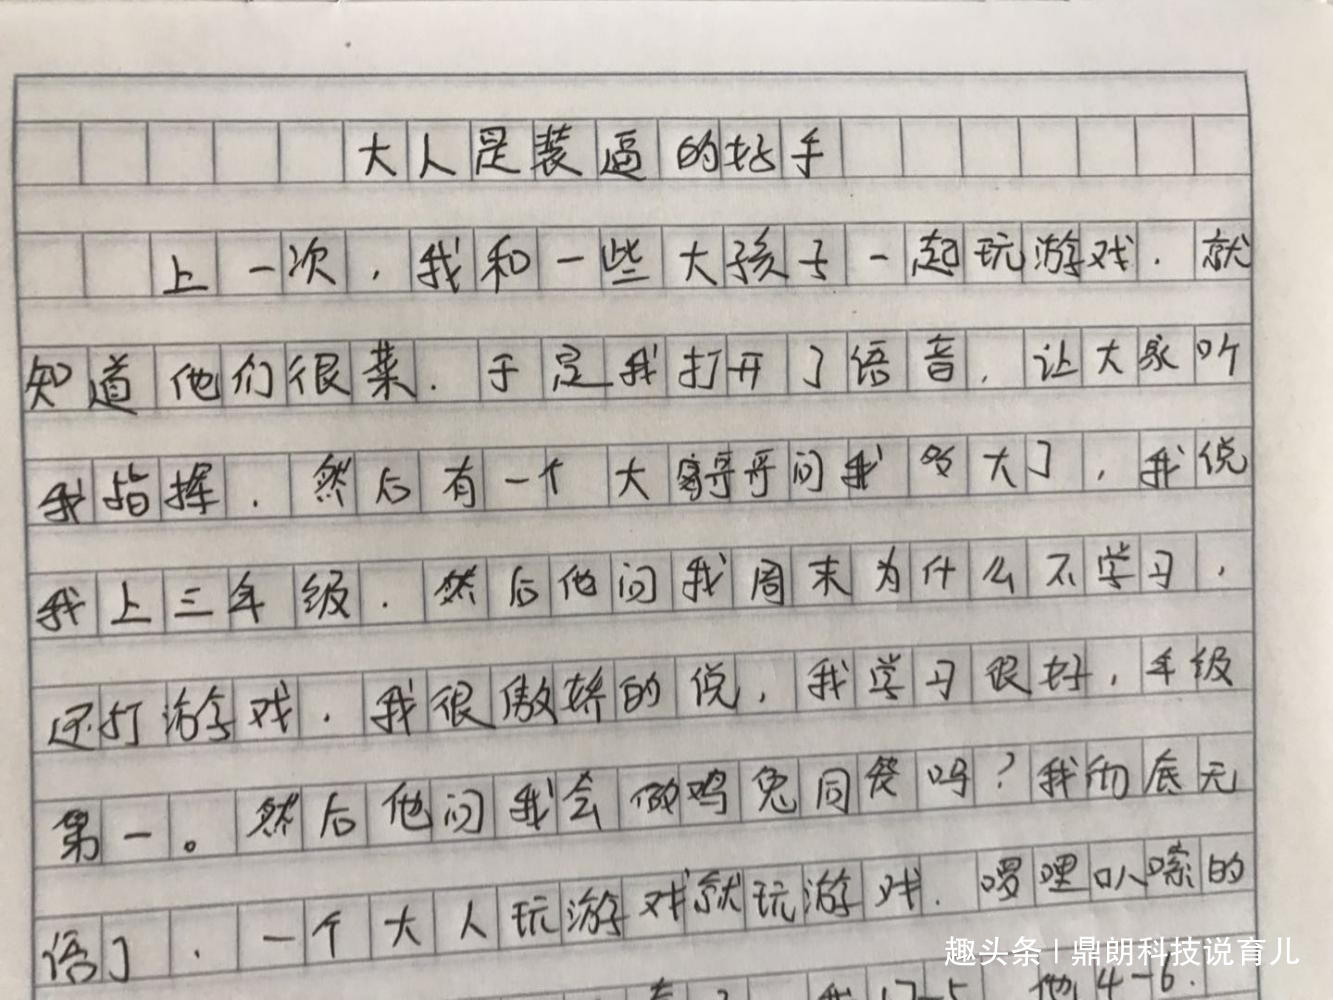 大人是装逼的好手
上一次，我和一些大孩子一起玩游戏.就
知道他们很菜.于是我打开了语音，让大家听
我指挥.然后有一个大哥哥问我多大了，我说
我上三年级.然后他问我周末为什么不学习，
还打游戏.我很傲娇的说，我学习很好，年级
第一。然后他问我会做鸡兔同笼吗？我彻底无
语了.一个大人玩游戏就玩游戏.啰哩叭嗦的
趣头条 | 鼎朗科技说育儿